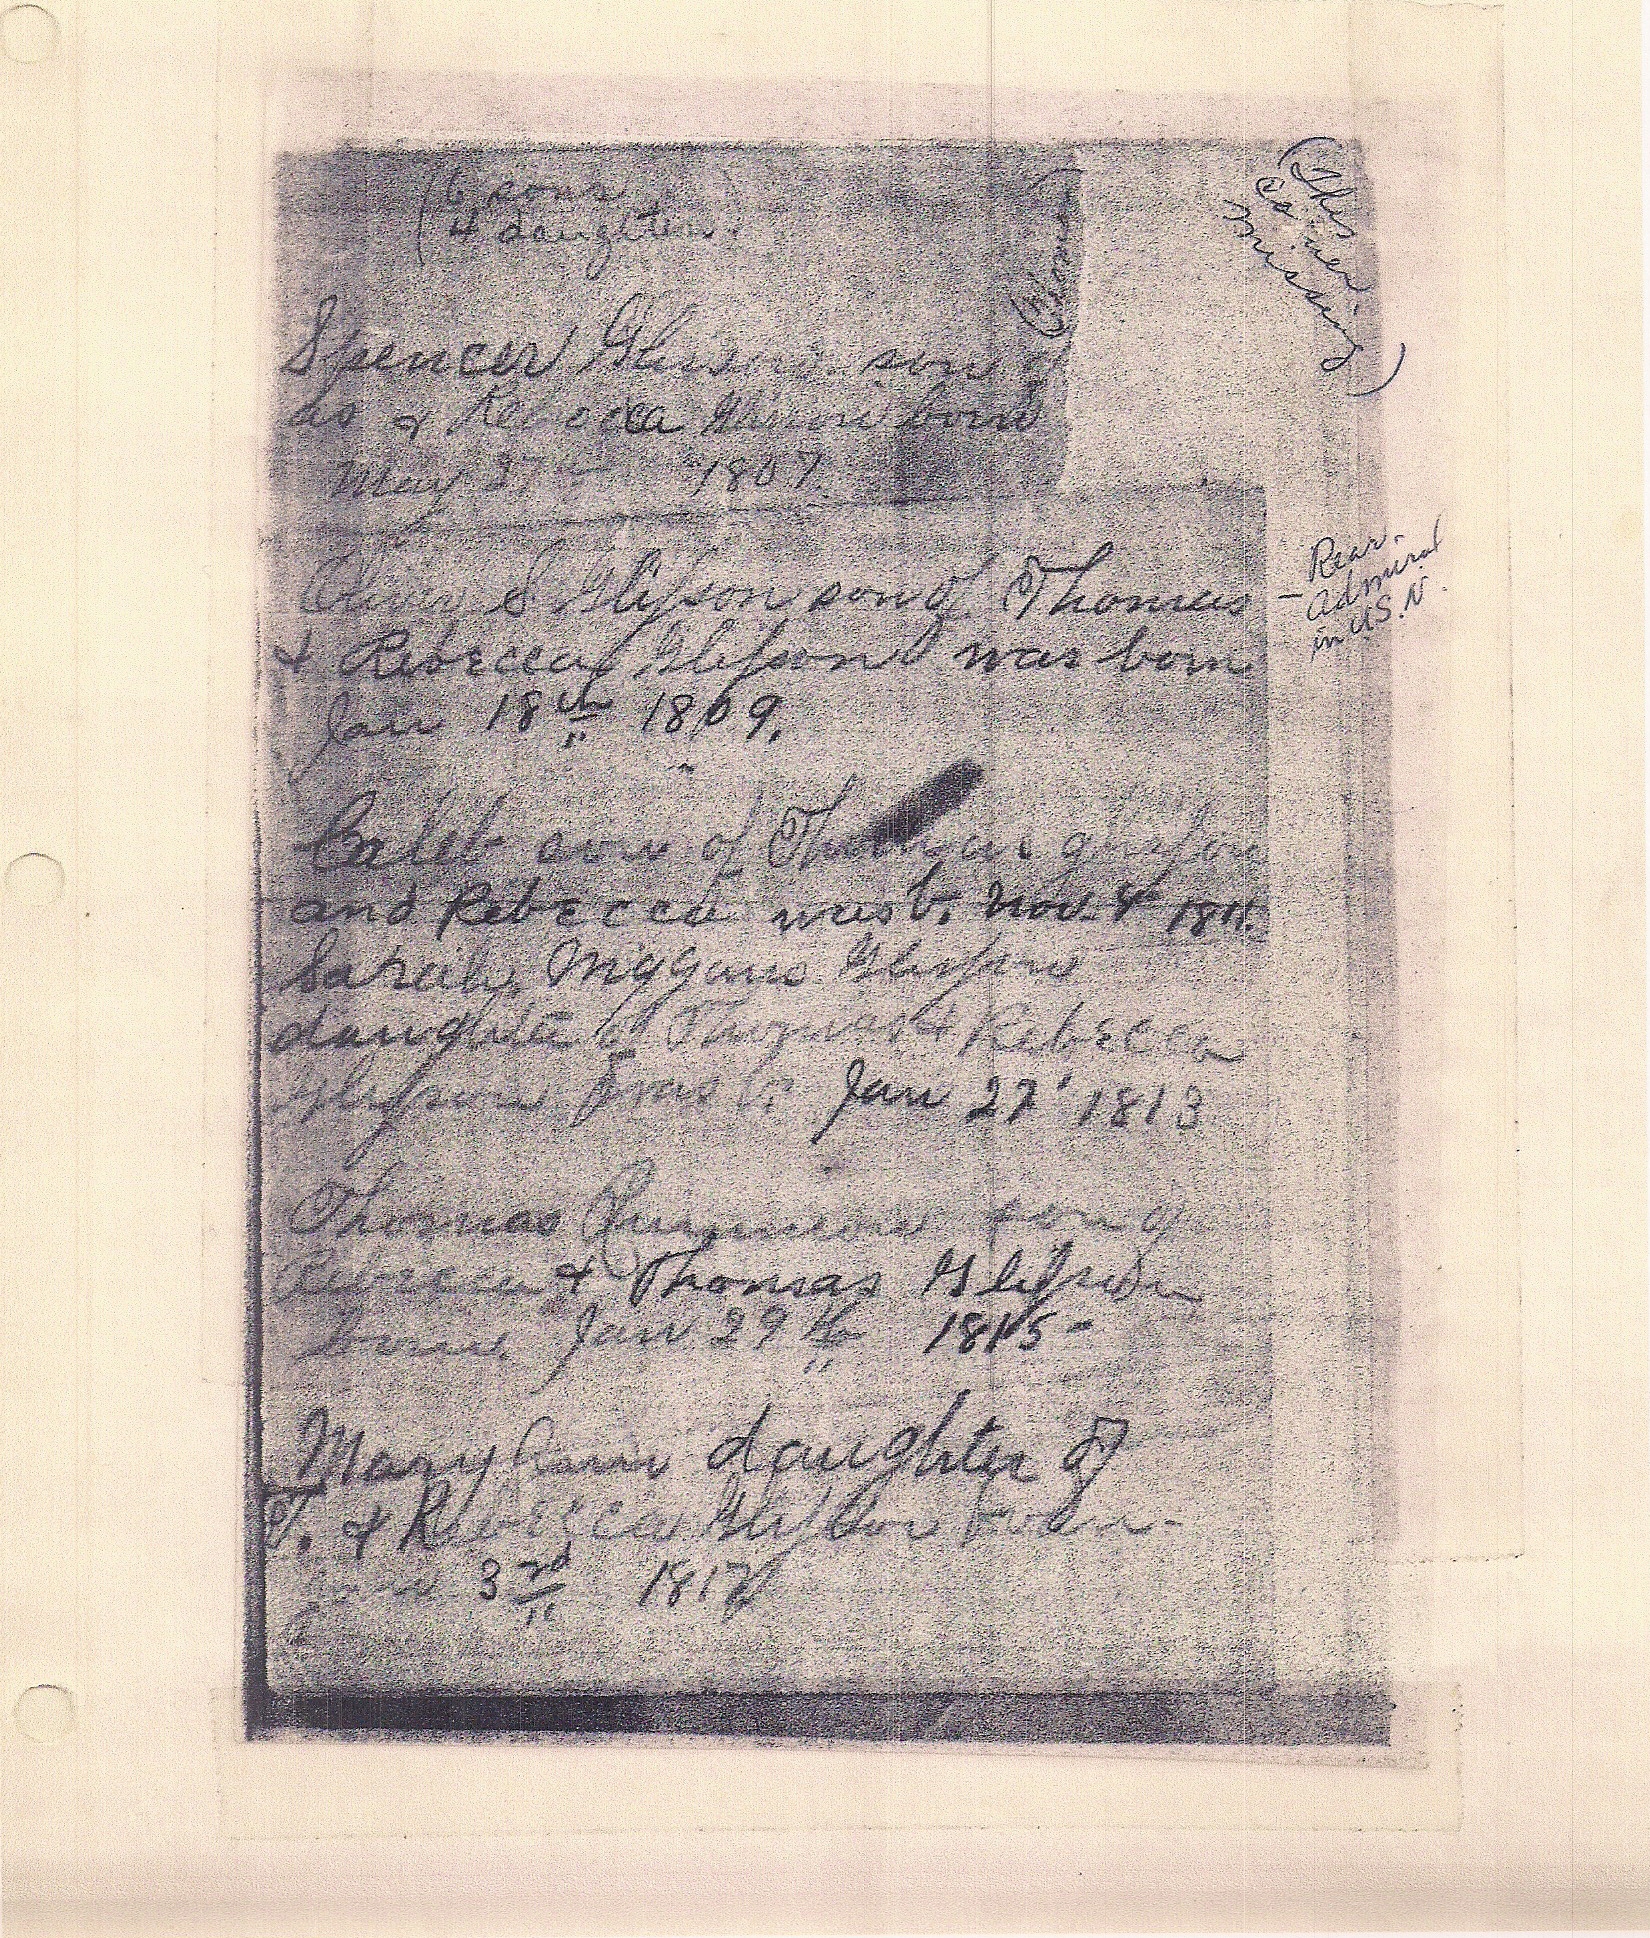 (6 sons
4 daughters)
(Thomas
(This
corner
missing)
Spencer Glisson son of
as & Rebecca Glisson born
May 27 1807.
Oliver S Glisson son of Thomas
& Rebecca Glisson was born
Jan 18th 1809.
– Rear-
Admiral
in U.S.N.
Caleb son of Thomas Glisson
and Rebecca was b. Nov. 8 1811.
Sarah Glisson
daughter of Thomas & Rebecca
Glisson was b. Jan 27 1813
Thomas son of
Rebecca & Thomas Glisson
born Jan 29th 1815-
Mary Ann daughter of
T. & Rebecca Glisson born
3rd 1817